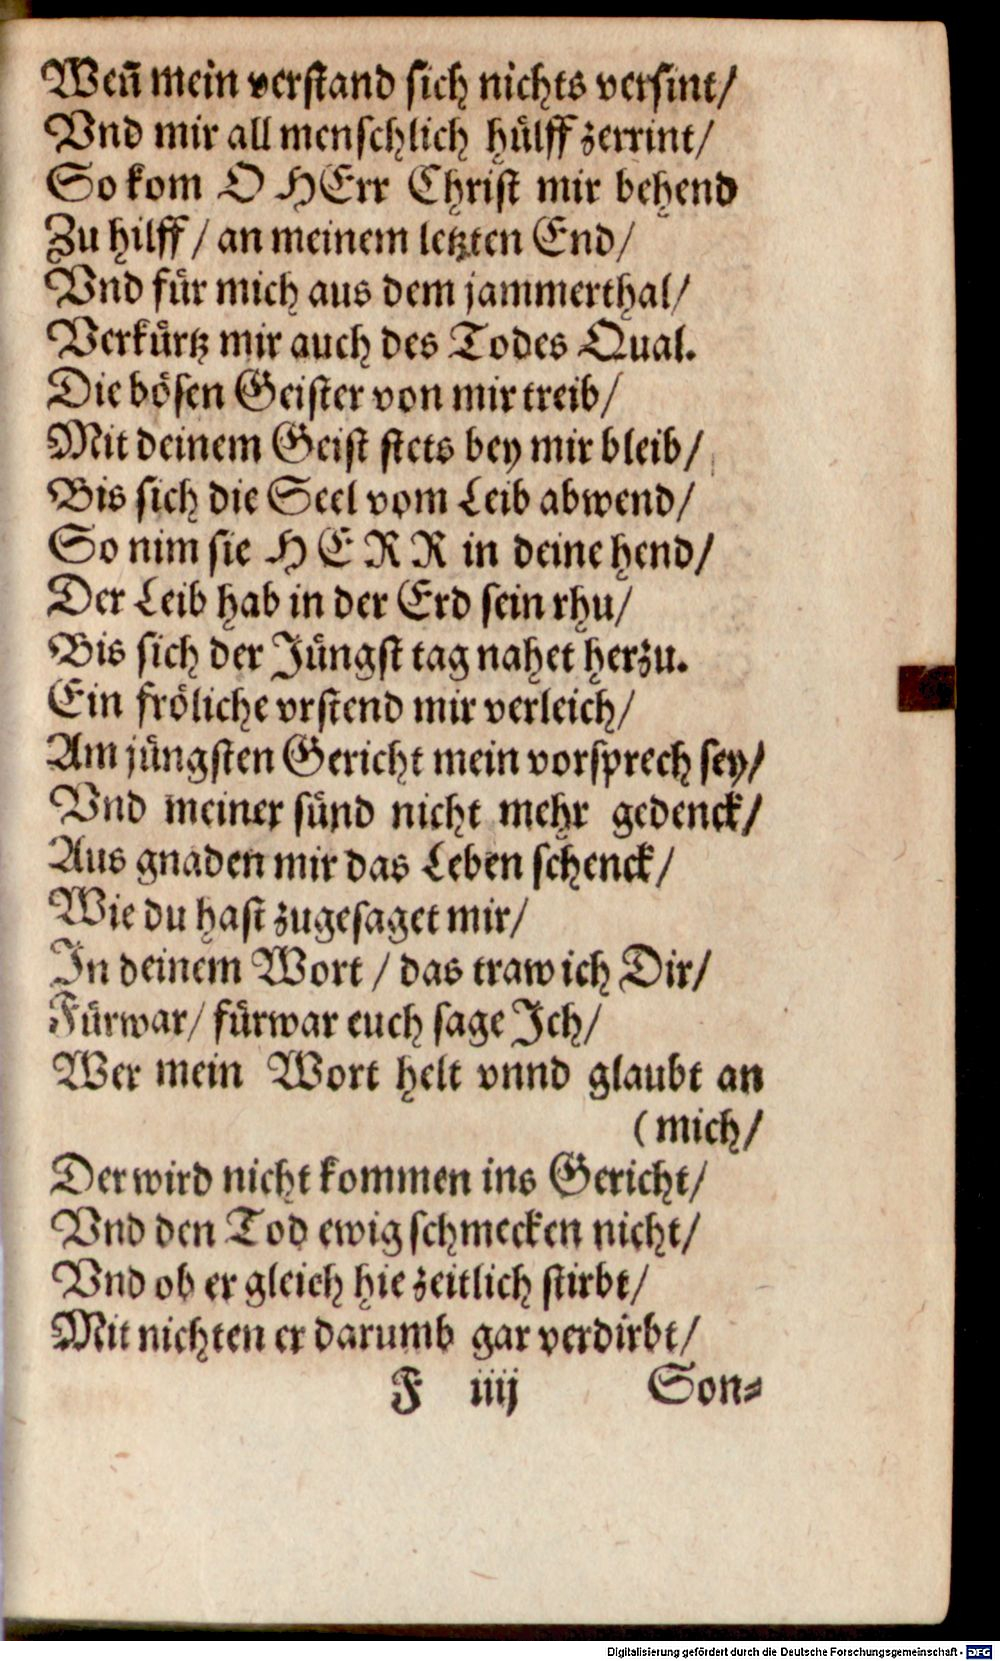 Weñ mein verstand sich nichts versint/
Vnd mir all menschlich hülff zerrint/
So kom O HErr Christ mir behend
Zu hilff / an meinem letzten End/
Vnd für mich aus dem jammerthal/
Verkürtz mir auch des Todes Qual.
Die bösen Geister von mir treib/
Mit deinem Geist stets bey mir bleib/
Bis sich die Seel vom Leib abwend/
So nim sie HERR in deine hend/
Der Leib hab in der Erd sein rhu/
Bis sich der Jüngst tag nahet herzu.
Ein fröliche vrstend mir verleich/
Am jüngsten Gericht mein vorsprech sey/
Vnd meiner sünd nicht mehr gedenck/
Aus gnaden mir das Leben schenck/
Wie du hast zugesaget mir/
In deinem Wort / das traw ich Dir/
Fürwar/ fürwar euch sage Jch/
Wer mein Wort helt vnnd glaubt an
(mich/
Der wird nicht kommen ins Gericht/
Vnd den Tod ewig schmecken nicht/
Vnd ob er gleich hie zeitlich stirbt/
Mit nichten er darumb gar verdirbt/
F iiij Son⸗
Digitalisierung gefördert durch die Deutsche Forschungsgemeinschaft - DFG